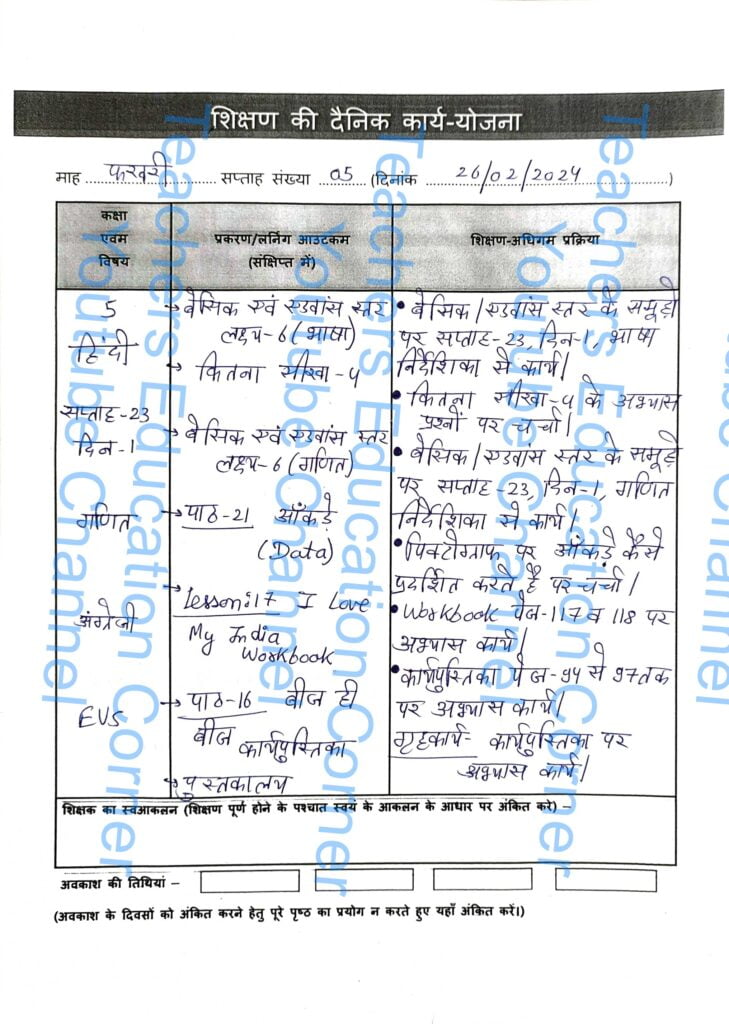 शिक्षण की दैनिक कार्य-योजना
माह ......फरवरी...... सप्ताह संख्या ...05... (दिनांक ......26/02/2024......)
कक्षा
एवम
विषय
प्रकरण/लर्निंग आउटकम
(संक्षिप्त में)
शिक्षण-अधिगम प्रक्रिया
5
हिंदी
सप्ताह-23
दिन-1
गणित
अंग्रेजी
EVS
→ बेसिक एवं एडवांस स्तर
लक्ष्य-6 (भाषा)
→ कितना सीखा-4
→ बेसिक एवं एडवांस स्तर
लक्ष्य-6 (गणित)
→ पाठ-21 आँकड़े
(Data)
→ Lesson:17 I Love
My India
Workbook
→ पाठ-16 बीज ही
बीज कार्यपुस्तिका
→ पुस्तकालय
• बेसिक/एडवांस स्तर के समूहों
पर सप्ताह-23, दिन-1, भाषा
निर्देशिका से कार्य।
• कितना सीखा-4 के अभ्यास
प्रश्नों पर चर्चा।
• बेसिक/एडवांस स्तर के समूहों
पर सप्ताह-23, दिन-1, गणित
निर्देशिका से कार्य।
• पिक्टोग्राफ पर आँकड़े कैसे
प्रदर्शित करते हैं पर चर्चा।
• Workbook पेज-117 व 118 पर
अभ्यास कार्य।
• कार्यपुस्तिका पेज-94 से 97 तक
पर अभ्यास कार्य।
गृहकार्य- कार्यपुस्तिका पर
अभ्यास कार्य।
शिक्षक का स्वआकलन (शिक्षण पूर्ण होने के पश्चात स्वयं के आकलन के आधार पर अंकित करे) –
अवकाश की तिथियां –
(अवकाश के दिवसों को अंकित करने हेतु पूरे पृष्ठ का प्रयोग न करते हुए यहाँ अंकित करें।)
Teachers Education Corner
Youtube Channel
Teachers Education Corner
Youtube Channel
Teachers Education Corner
Youtube Channel